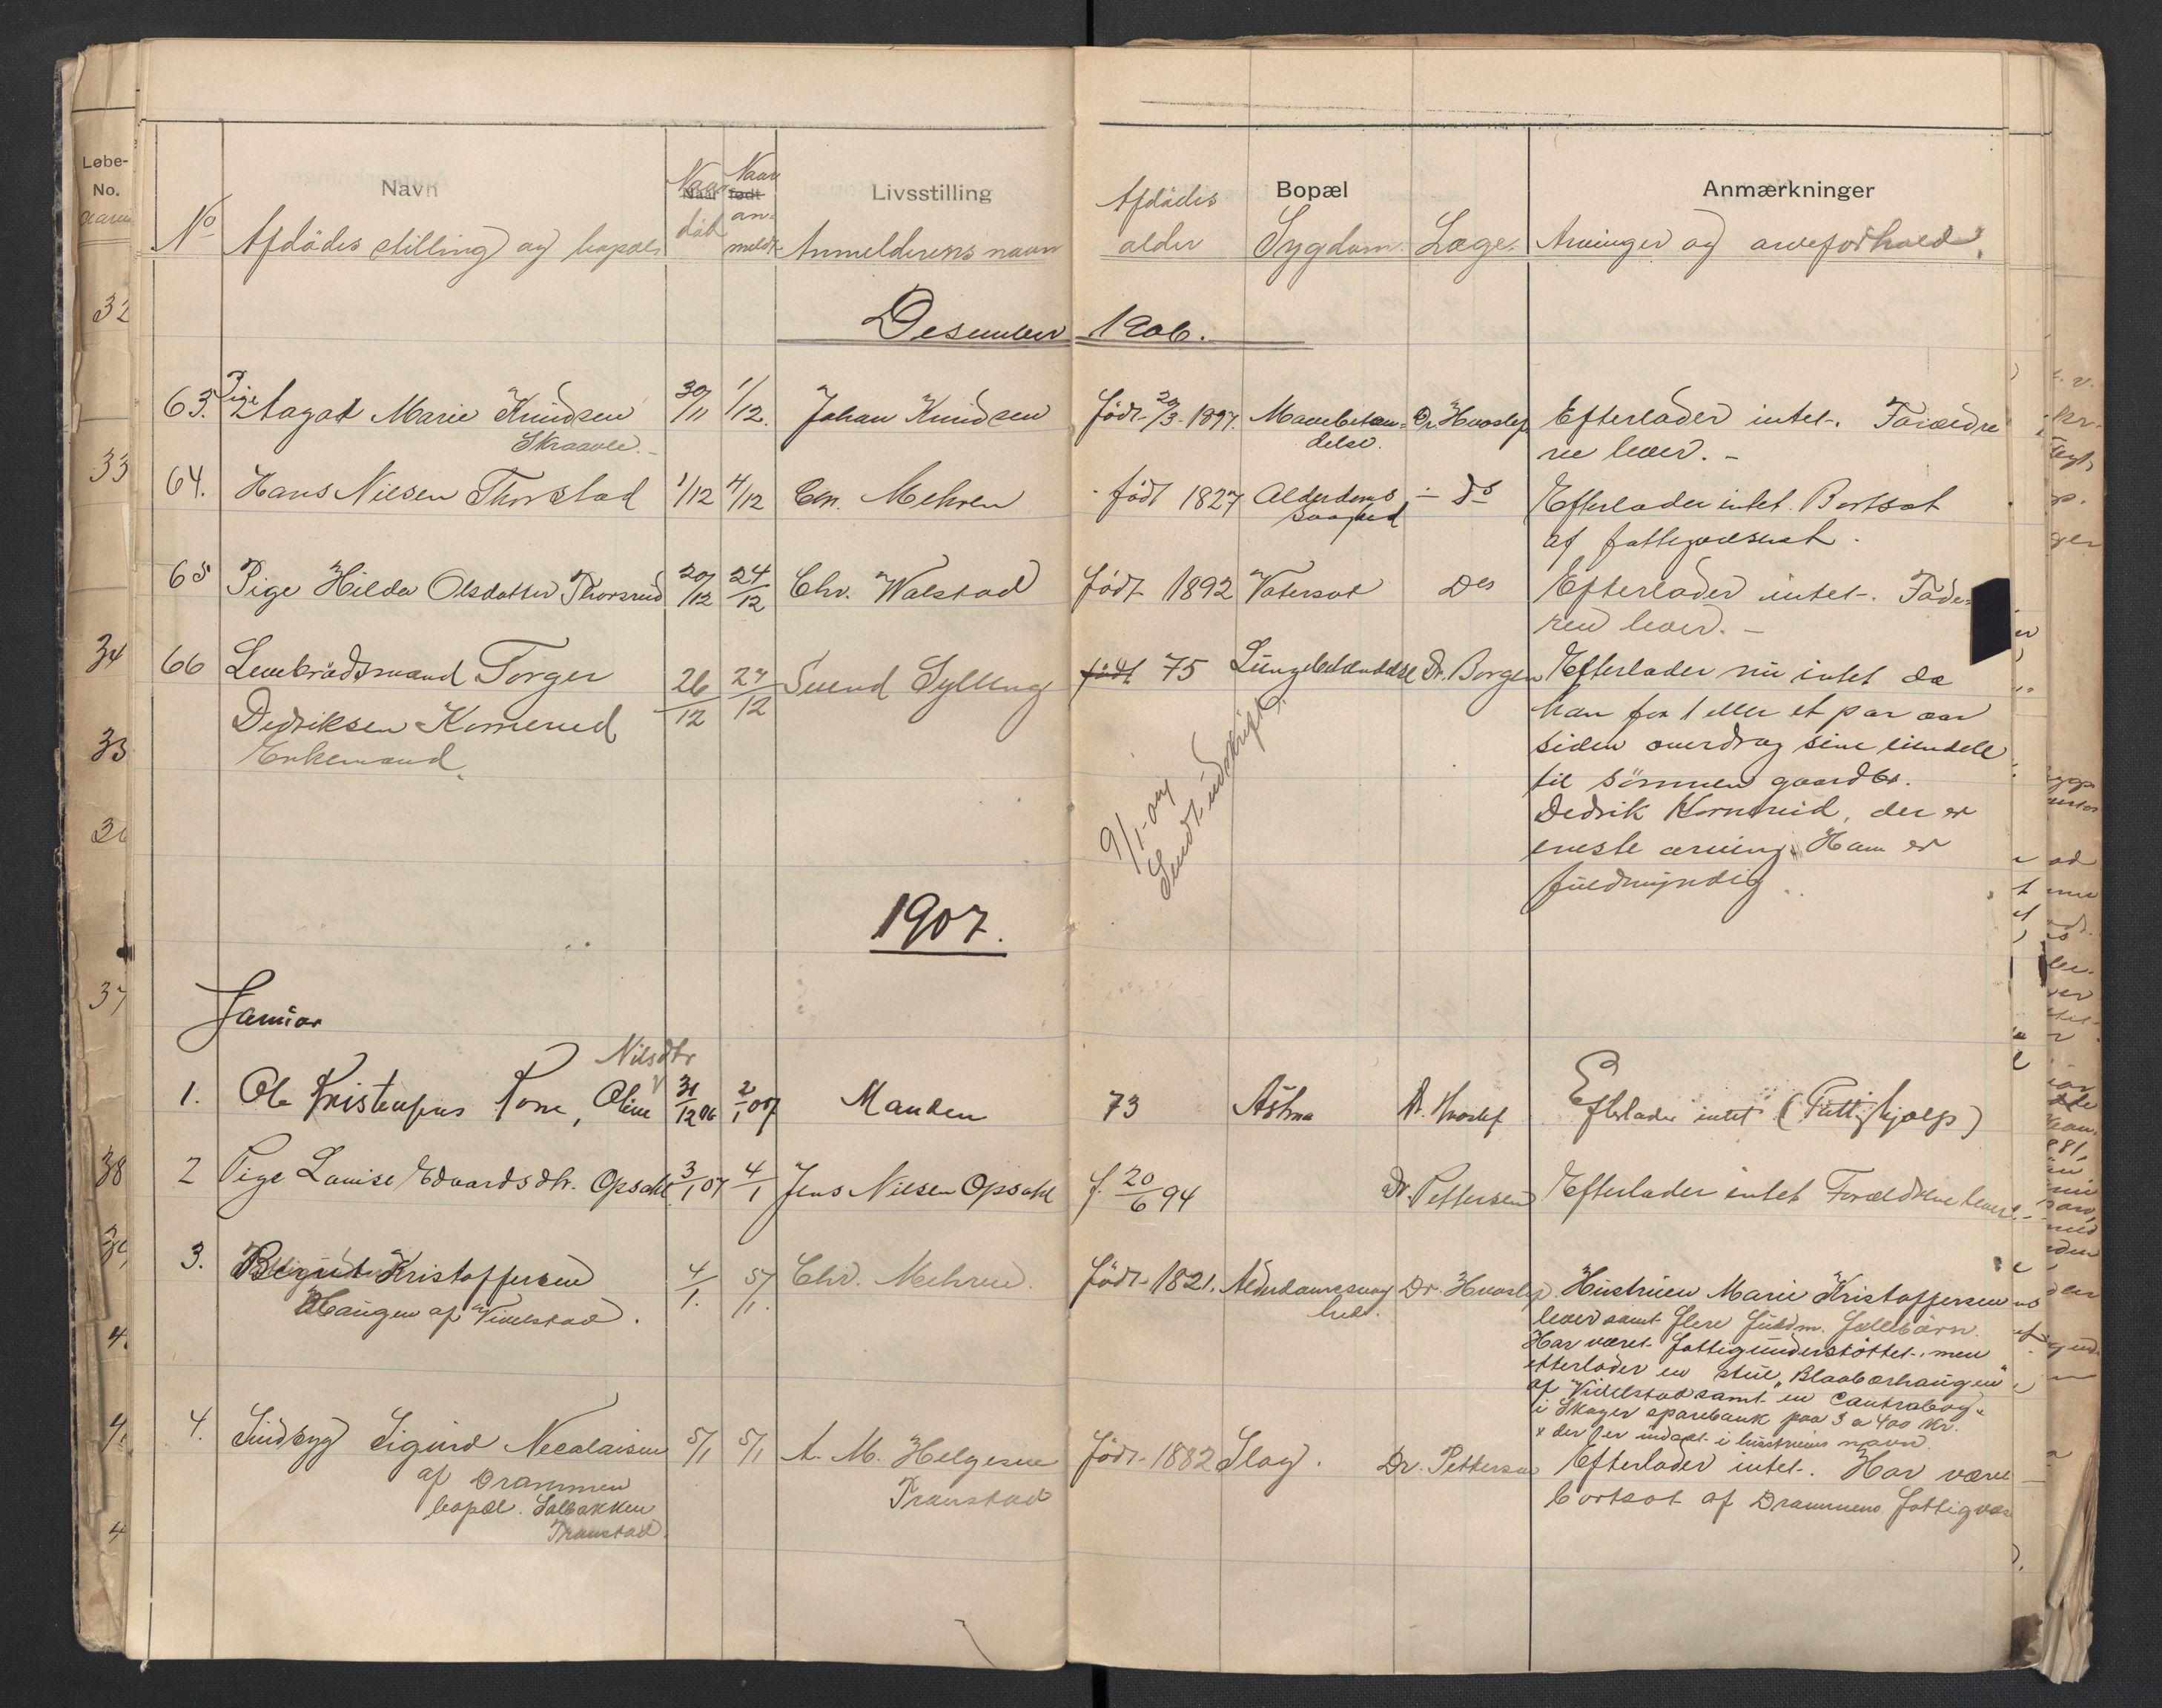 Løbe-
No.
Navn
Naar
Naar
Naar
født
Livsstilling
Bopæl
Anmærkninger
No
Afdödes stilling og bopæl.
död
an-
meldt
Anmelderens navn
Afdödes
alder
Sygdom.
Læge.
Arvinger og arveforhold.
Desember 1906.
63. Pige Aagot Marie Knudsen 30/11 1/12. Johan Knudsen født 20/3-1897. Mavebetæn- Dr. Hvoslef Efterlader intet. Forældre
Skraavle.- delse. ne lever. -
64. Hans Nilsen Thorstad 1/12 4/12 Chr. Mehren født 1827 Alderdoms - Ds Efterlader intet. Bortsat
svaghed af fattigvæsenet.
65 Pige Hilda Olsdatter Thorsrud 20/12 24/12 Chr. Walstad født 1892 Vatersot Ds Efterlader intet. Fade-
ren lever. -
66 Lembrådsmand Torger 26/12 27/12 Svend Sylling født 75 Lungebetændelse Dr. Borgen Efterlader nu intet da
Dedriksen Komerud han for 1 eller et par aar
Enkemand. siden overdrog sine eiendele
til sönnen gaardbr.
Dedrik Komerud, der er
eneste arving. Han er
fuldmyndig.
9/1-07
Sendt uddskrift.
1907.
Januar
Nilsdtr
1. Ole Kristensens Kone, Oline 31/12 06 2/1 07 Manden 73 Astma Dr. Hvoslef Efterlader intet (Fattighjælp)
2 Pige Lovise Edvardsdtr. Opsahl 3/1 07 4/1 Jens Nilsen Opsahl f. 20/6 94 Dr. Pettersen Efterlader intet Forældrene lever. -
3. Kristoffersen 4/1. 5/1. Chr. Mehren. født 1821. Alderdomssvag Dr. Hvoslef. Hustruen Marie Kristoffersen
Haugen af Vivelstad. hed. lever samt flere fuldm. fællbörn.
Har været fattigunderstöttet, men
efterlader en stue "Blaabærhaugen"
af Vivelstad samt en Contrabog
i Skoger sparebank paa 3 a 400 Kr.
x der er indsat i hustruens navn.
4. Sindsyg Sigurd Nicolaisen 5/1 5/1 A. M. Helgesen født 1882 Slag. Dr. Pettersen Efterlader intet. Har været
af Drammen Transtad bortsat af Drammens fattigvæs
bopæl. Solbakken
Transtad.